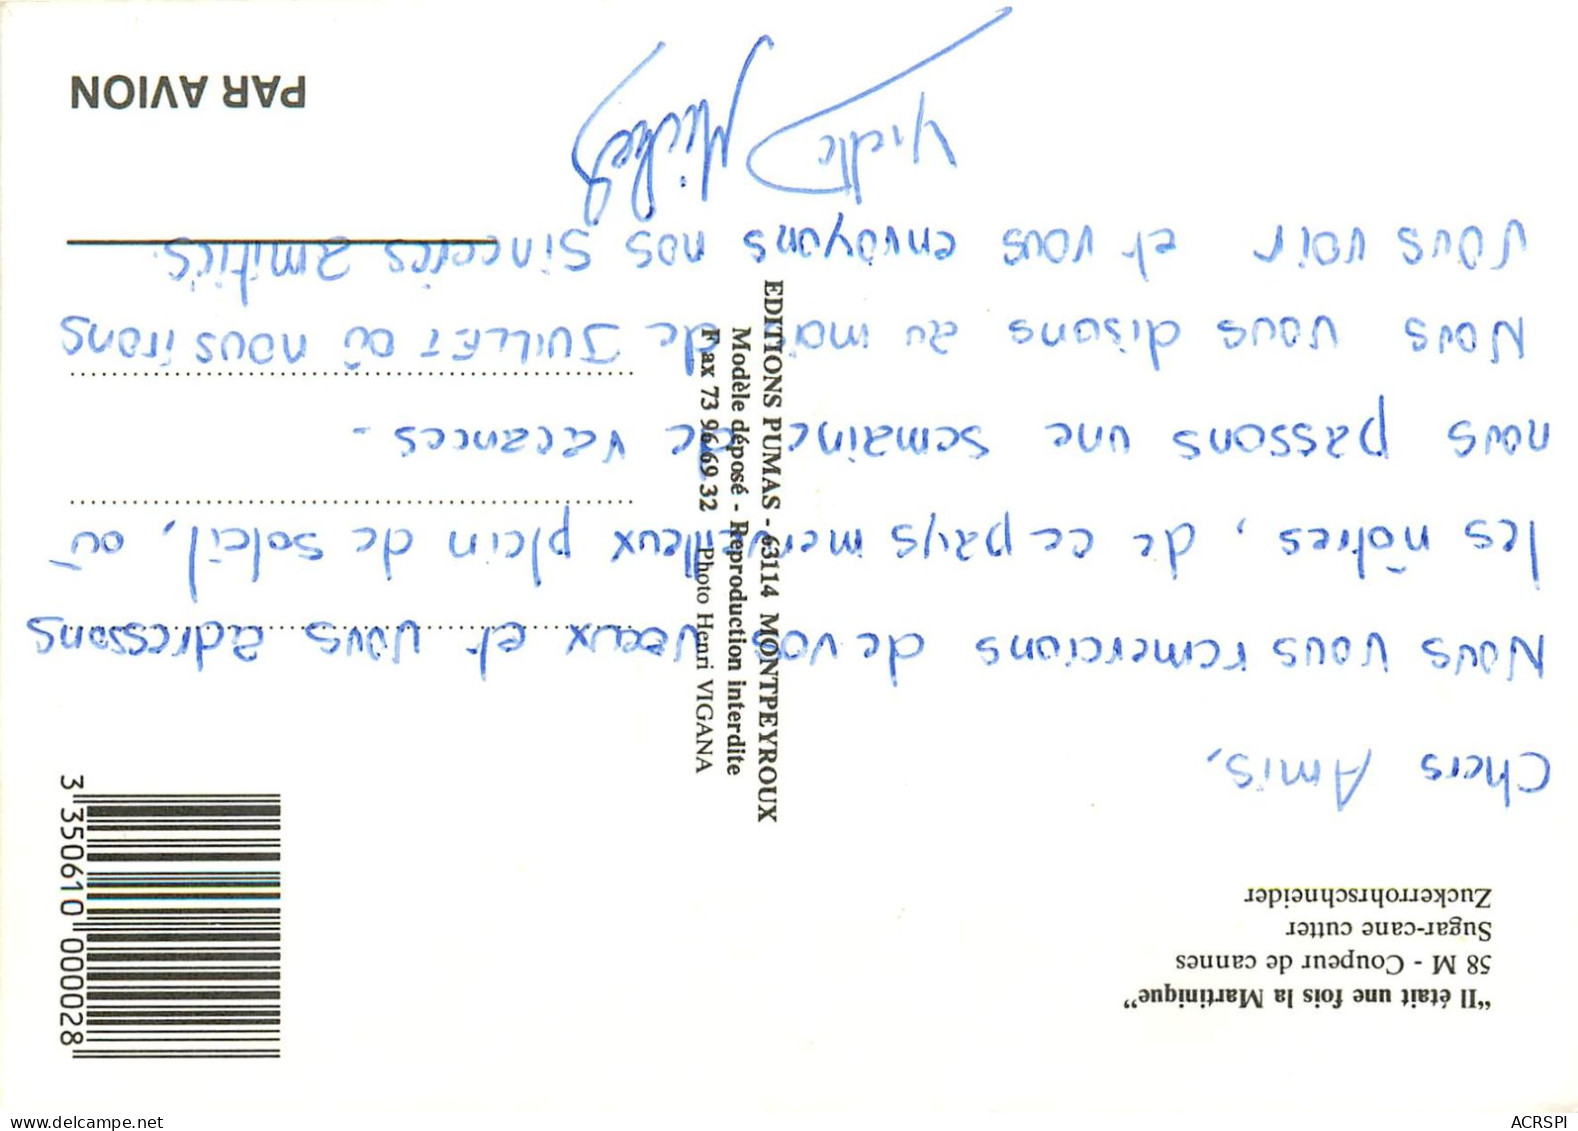 "Il était une fois la Martinique"
58 M - Coupeur de cannes
Sugar-cane cutter
Zuckerrohrschneider
Chers Amis,
Nous vous remercions de vos vœux et vous adressons
les nôtres, de ce pays merveilleux plein de soleil, où
nous passons une semaine de vacances.
Nous vous disons au mois de JUILLET où nous irons
vous voir et vous envoyons nos sincères amitiés.
Michel
EDITIONS PUMAS - 63114 MONTPEYROUX
Modèle déposé - Reproduction interdite
Fax 73 96 69 32 Photo Henri VIGANA
PAR AVION
3 350610 000028
ACRSPI